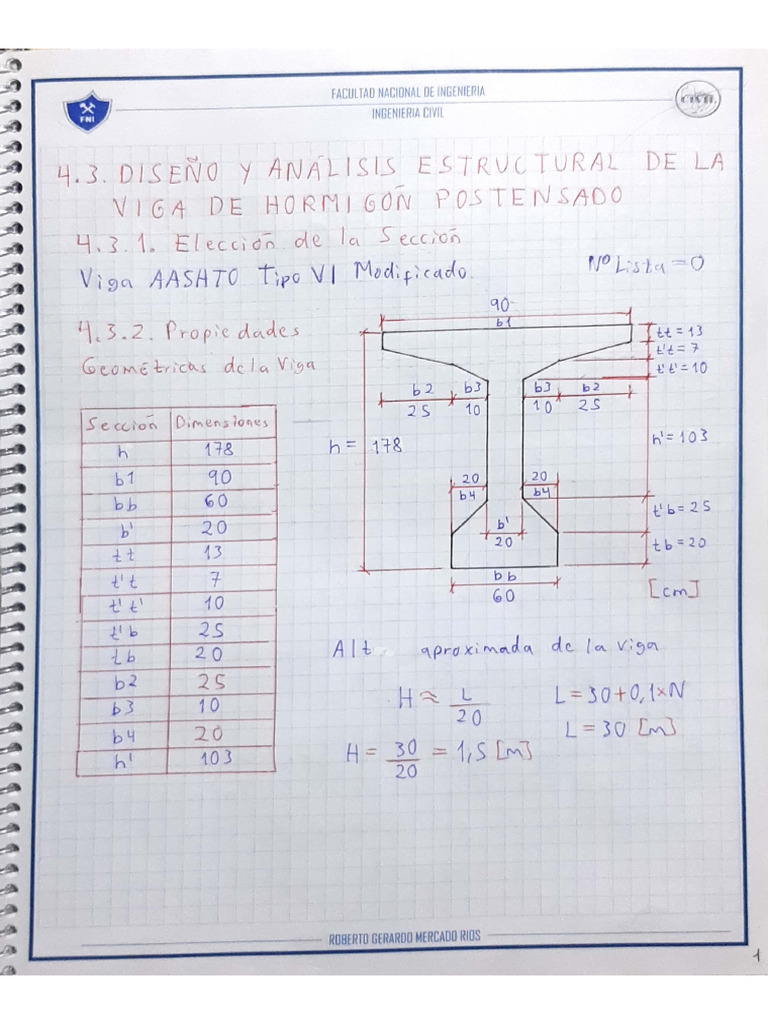 FACULTAD NACIONAL DE INGENIERIA
INGENIERIA CIVIL
FNI
CIVIL
4.3. DISEÑO Y ANÁLISIS ESTRUCTURAL DE LA
VIGA DE HORMIGÓN POSTENSADO
4.3.1. Elección de la Sección
Viga AASHTO Tipo VI Modificado.
Nº Lista = 0
4.3.2. Propiedades
Geométricas de la Viga
Sección Dimensiones
h 178
b1 90
bb 60
b' 20
tt 13
t't 7
t't' 10
t'b 25
tb 20
b2 25
b3 10
b4 20
h' 103
90
b1
tt = 13
t't = 7
t't' = 10
b2 b3 b3 b2
25 10 10 25
h = 178
h' = 103
20 20
b4 b4
t'b = 25
b'
20
tb = 20
bb
60
[cm]
Alt aproximada de la viga
H ≈ L/20
L = 30+0,1×N
L = 30 [m]
H = 30/20 = 1,5 [m]
ROBERTO GERARDO MERCADO RIOS
1